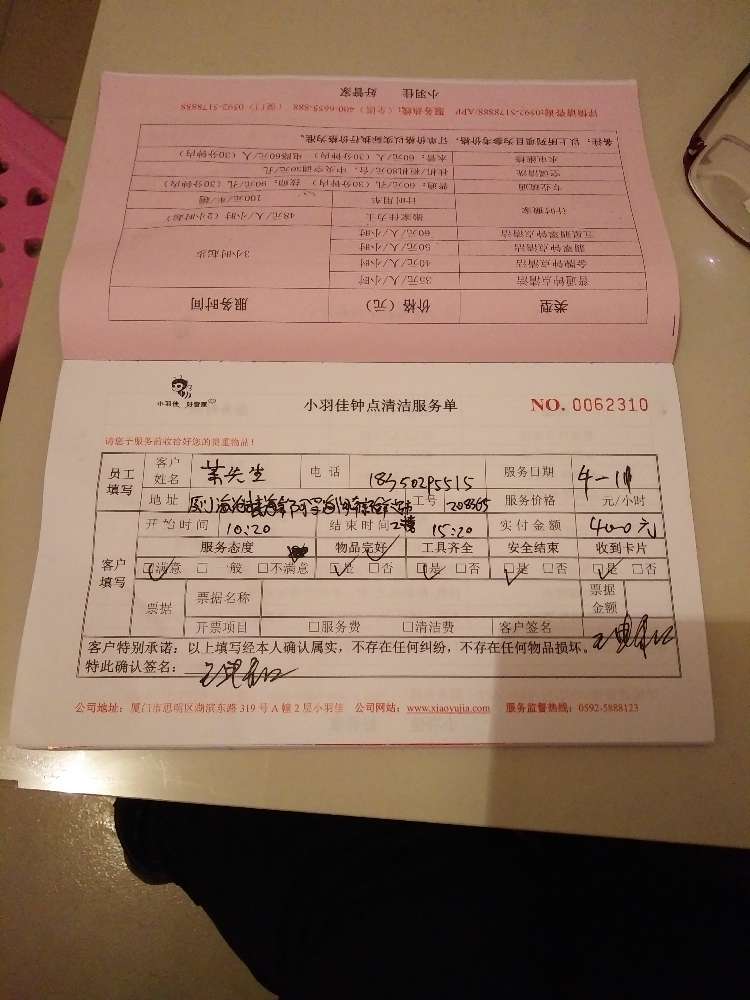 小羽佳 好管家
详情请咨询:0592-5178888/APP 服务热线:(全国)400-6655-888 (厦门)0592-5178888
备注:以上所列项目为参考价格,订单价格以实际执行价格为准。
水电维修 水管:60元/人(30分钟内) 电路60元/人(30分钟内)
空调清洗
专业疏通 普通:60元/孔(30分钟内) 90元/孔(30分钟内)
计时搬家 计时用车 100元/车/趟
搬家大力士 48元/人/小时(2小时起)
60元/人/小时
50元/人/小时
金牌钟点清洁 40元/人/小时 3小时起步
普通钟点清洁 35元/人/小时
类型 价格(元) 服务时间
小羽佳 好管家
小羽佳钟点清洁服务单 NO. 0062310
请您于服务前收拾好您的贵重物品!
员工填写 客户姓名 先生 电话 18350295515 服务日期
地址 工号 208365 服务价格 元/小时
开始时间 10:20 结束时间 15:20 实付金额 400元
客户填写 服务态度 物品完好 工具齐全 安全结束 收到卡片
□满意 □一般 □不满意 □是 □否 □是 □否 □是 □否 □是 □否
票据 票据名称 票据金额
开票项目 □服务费 □清洁费 客户签名
客户特别承诺:以上填写经本人确认属实,不存在任何纠纷,不存在任何物品损坏。
特此确认签名:
公司地址:厦门市思明区湖滨东路319号A幢2层小羽佳 公司网站:www.xiaoyujia.com 服务监督热线:0592-5888123